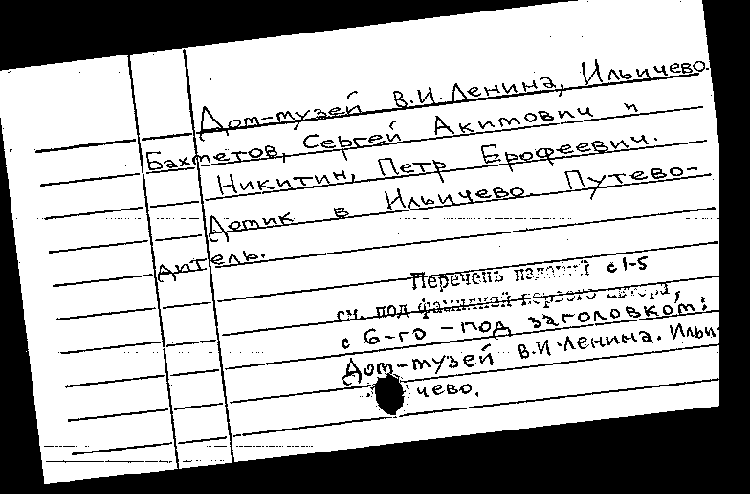 Дом-музей В.И.Ленина, Ильичево.
Бахметов, Сергей Акимович и
Никитин, Петр Ерофеевич.
Домик в Ильичево. Путево-
дитель.
Перечень изданий с 1-5
см. под фамилией первого автора,
с 6-го - под заголовком:
Дом-музей В.И.Ленина. Ильи-
чево.